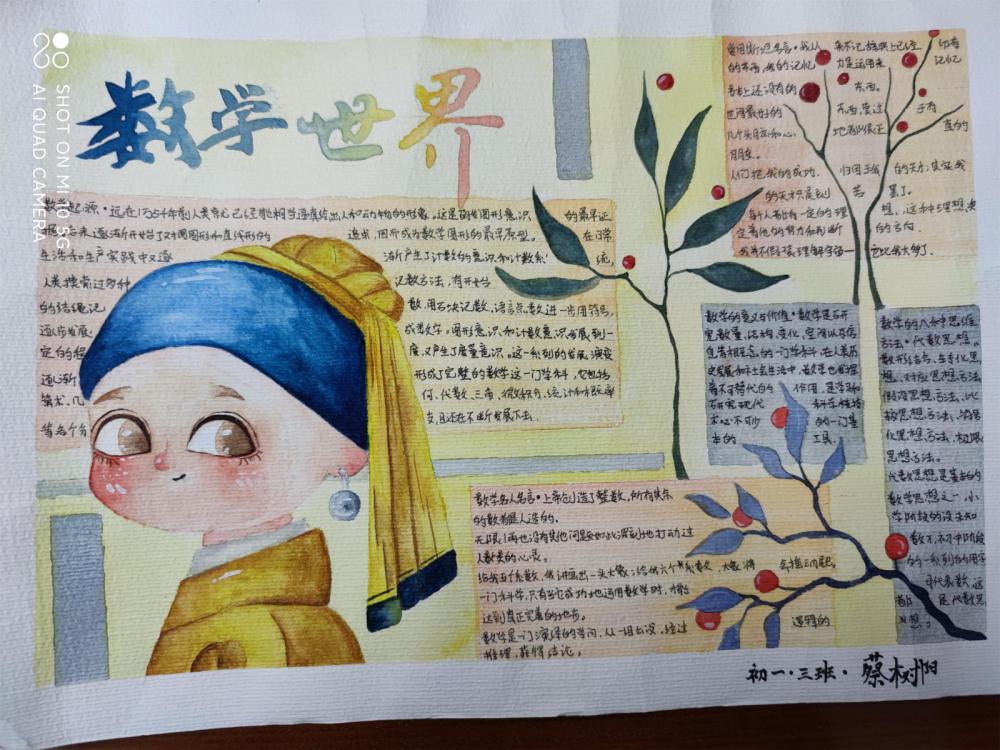 数学世界
SHOT ON MI 10 5G
AI QUAD CAMERA
数学起源·远在1万5千年前人类就已经能相当逼真绘出人和动物的形象。这是萌发图形意识
的最早证
据。后来逐渐开始了对圆图形和直线形的
追求,因所成为数学图形的最早原型。
在日常
生活和生产实践中又逐
渐产生了计数的意识和计数系
统,
人类摸索过多种
记数方法,有开始
的结绳记
数,用石块记数,语言点数进一步用符号,
逐步发展
成数字。图形意识和计数意识发展到一
定的程
度,又产生了度量意识。这一系列的发展演变
逐渐
形成了完整的数学这一门学科,它包括
算术、几
何、代数、三角、微积分、统计和概率
等各个分
支,且还在不断发展下去。
爱因斯坦名言·我从
来不记辞典上已经
印有
的东西,我的记忆
力是运用来
记忆
书本上还没有的
东西。
世间最好的
东西,莫过
于有
几个头目和心
地都很正
直的
朋友。
人们把我的成功,
归因于我
的天才;其实我
的天才只是刻
苦
罢了。
每个人都有一定的理
想,这种理想决
定着他的努力和判断
的方向.
数学的意义与价值·数学是研
究数量、结构、变化、空间以及信
息等概念的一门学科,在人类历
史发展和社会生活中,数学也发挥
着不可替代的
作用,是学习和
研究现代
科学技术
术必不可少
的一门基
本的
工具.
数学的八种思维
方法·代数思想,
数形结合、转化思
想、对应思想方法
假设思想方法、比
较思想方法、符号
化思想方法、极限
思想方法。
代数思想是基本的
数学思想之一,小
学阶段的设未知
数x,初中阶段
的一系列的用字
母代表数,这
都
是代数思
想。
数学名人名言·上帝创造了整数,所有其余
的数都是人造的。
无限!再也没有其他问题如此深刻地打动过
人类的心灵。
给我五个系数,我讲画出一头大象;给我六个系数,大象将
会摇动尾巴.
一门科学,只有当它成功地运用数学时,才能
达到真正完善的地步。
数学是一门演绎的学问,从一组公设,经过
逻辑的
推理,获得结论。
初一·三班·蔡树阳